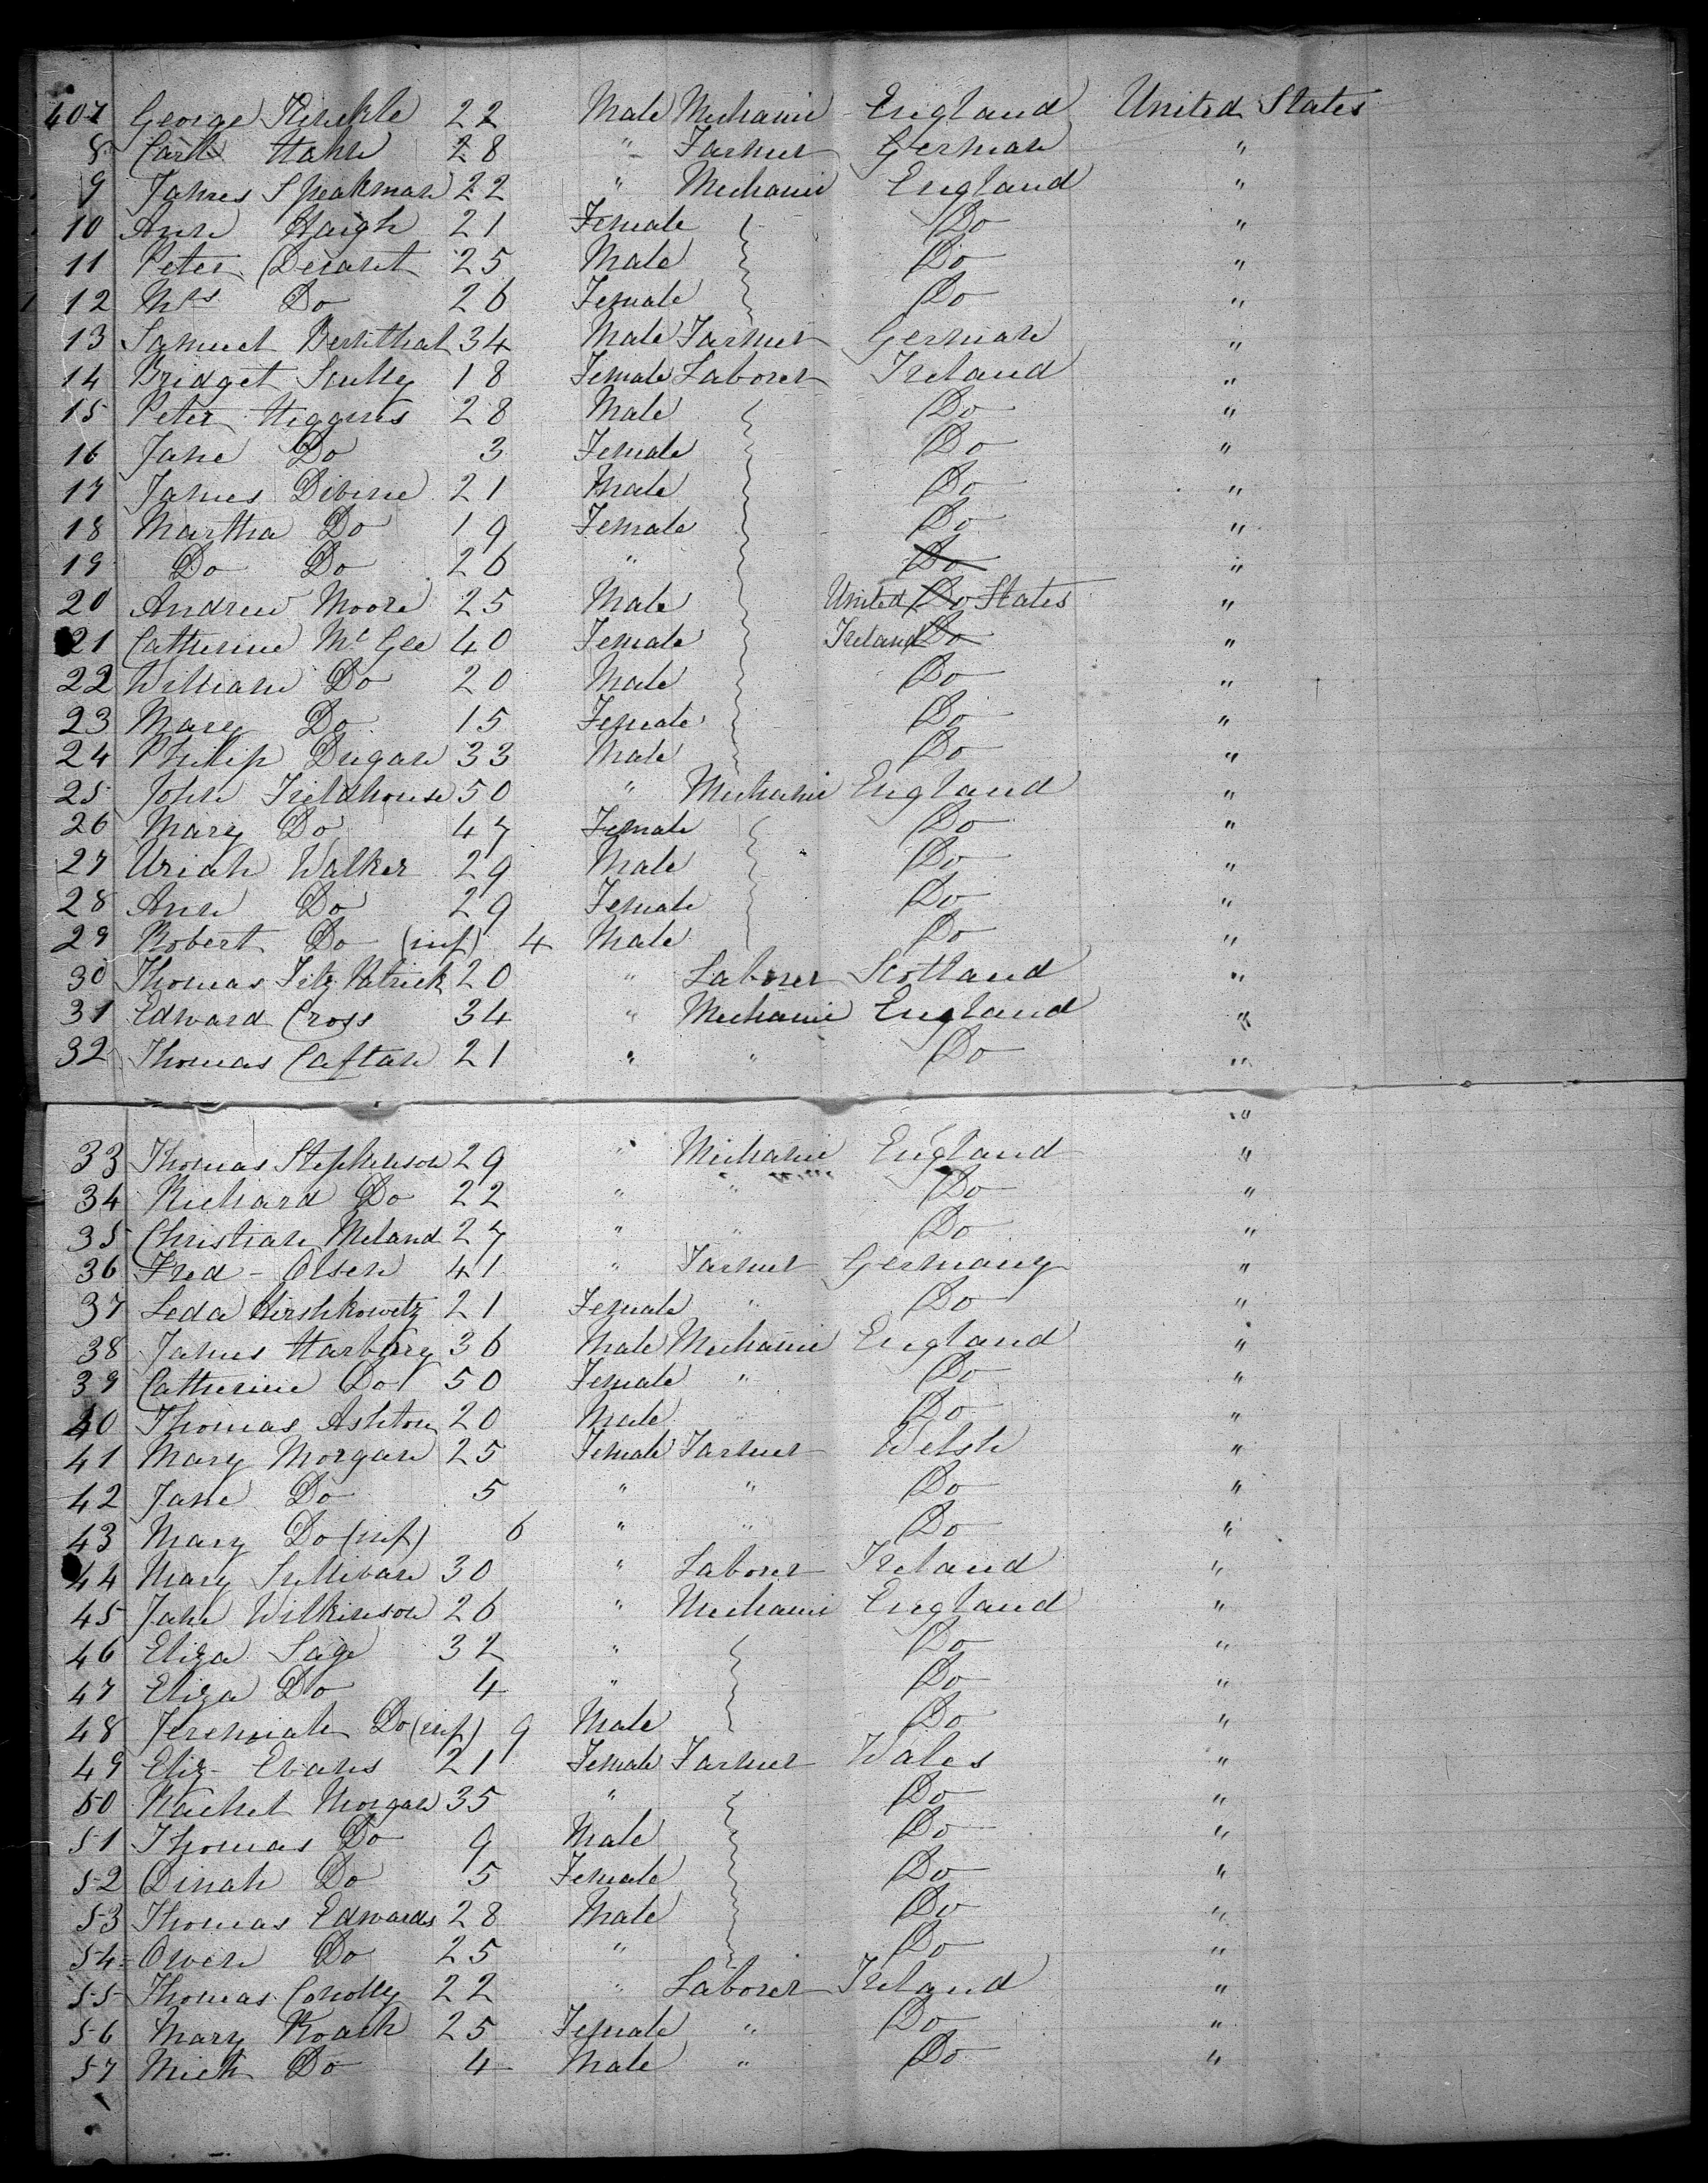 407 George 22 Male Mechanic England United States
8 Carl Hahn 28 " Farmer German "
9 James Speakman 22 " Mechanic England "
10 Ann Haigh 21 Female Do "
11 Peter 25 Male Do "
12 Mrs Do 26 Female Do "
13 Samuel 34 Male Farmer German "
14 Bridget Scully 18 Female Laborer Ireland "
15 Peter Higgins 28 Male Do "
16 Jane Do 3 Female Do "
17 James Divine 21 Male Do "
18 Martha Do 19 Female Do "
19 Do Do 26 " Do "
20 Andrew Moore 25 Male United Do States "
21 Catherine McGee 40 Female Ireland Do "
22 William Do 20 Male Do "
23 Mary Do 15 Female Do "
24 Phillip Dugan 33 Male Do "
25 John Fieldhouse 50 " Mechanic England "
26 Mary Do 47 Female Do "
27 Uriah Walker 29 Male Do "
28 Ann Do 29 Female Do "
29 Robert Do (inf) 4 Male Do "
30 Thomas Fitz Patrick 20 " Laborer Scotland "
31 Edward Cross 34 " Mechanic England "
32 Thomas Caftan 21 " " Do "
"
33 Thomas Stephenson 29 " Mechanic England "
34 Richard Do 22 " " Do "
35 Christian Meland 27 " " Do "
36 Fred - Olsen 41 " Farmer Germany "
37 Leda Hirshkowitz 21 Female " Do "
38 James Harbury 36 Male Mechanic England "
39 Catherine Do 50 Female " Do "
40 Thomas Ashton 20 Male " Do "
41 Mary Morgan 25 Female Farmer Welsh "
42 Jane Do 5 " " Do "
43 Mary Do (inf) 6 " " Do "
44 Mary Sullivan 30 " Laborer Ireland "
45 Jane Wilkinson 26 " Mechanic England "
46 Eliza Sage 32 " Do "
47 Eliza Do 4 " Do "
48 Jeremiah Do (inf) 9 Male Do "
49 Eliz- Evans 21 Female Farmer Wales "
50 Rachel Morgan 35 " Do "
51 Thomas Do 9 Male Do "
52 Dinah Do 5 Female Do "
53 Thomas Edwards 28 Male Do "
54 Owen Do 25 " Do "
55 Thomas Conolly 22 " Laborer Ireland "
56 Mary Roach 25 Female " Do "
57 Mich Do 4 Male " Do "